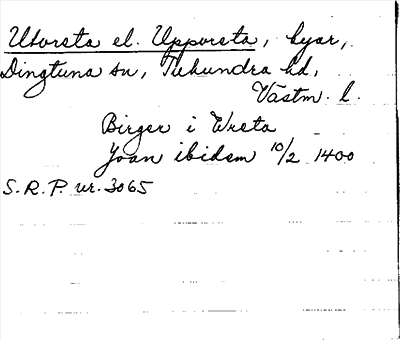 Utvreta el. Uppvreta, byar,
Dingtuna sn, Tuhundra hd,
Västm. l.
Birger i Wreta
Joan ibidem 10/2 1400
S.R.P. nr. 3065